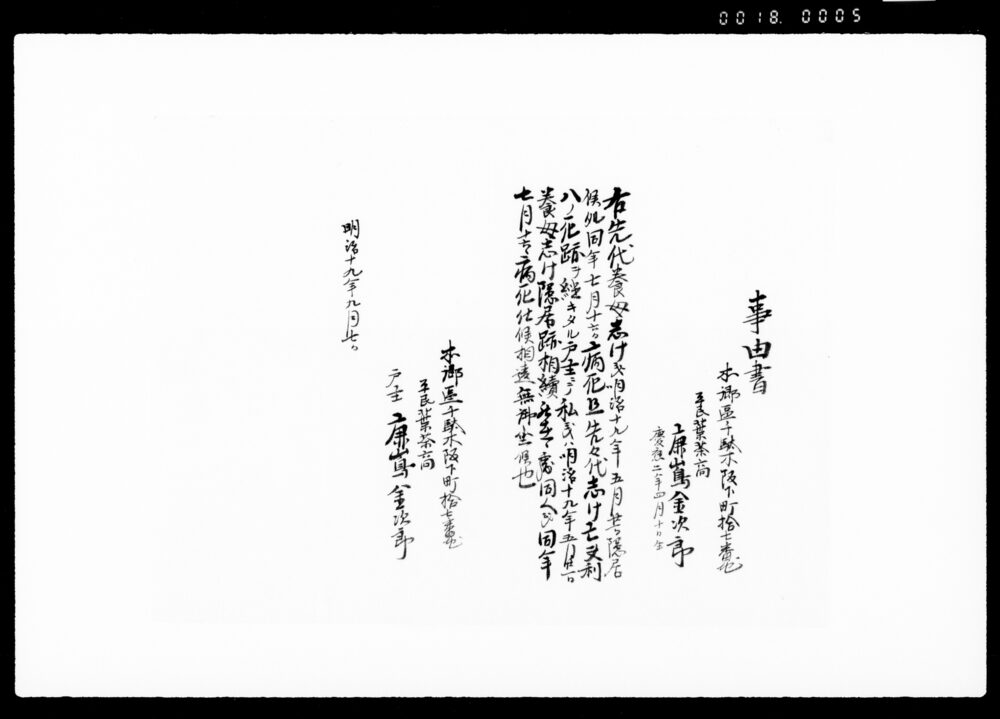 0018. 0005
事由書
本郷區千駄木坂下町拾七番地
平民葉茶商
廉嶌金次郎
慶應二年四月十日生
右先代養母志け義明治十九年五月廿日隠居
候処同年七月十六日病死且先々代志け亡夫利
八ノ死跡ヲ継キタル戸主ニテ私義ハ明治十九年五月廿一日
養母志け隠居跡相續同人義同年
七月十六日病死仕候相違無御坐候也
明治十九年九月七日
本郷區千駄木坂下町拾七番地
平民葉茶商
戸主 廉嶌金次郎